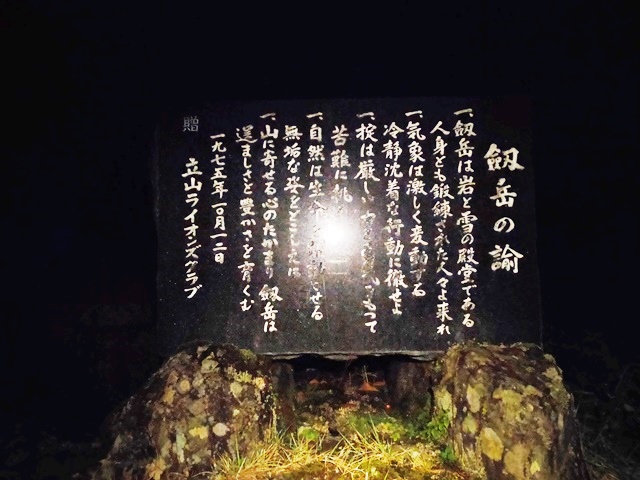 劔岳の諭
一、劔岳は岩と雪の殿堂である
人身とも鍛錬された人々よ来れ
一、気象は激しく変動する
冷静沈着な行動に徹せよ
一、掟は厳しい もって
苦難に
一、自然は生 せる
無垢な姿を に
一、山に寄せる心のたかまり 劔岳は
逞ましさと豊かさを育くむ
一九七五年一〇月一二日
贈 立山ライオンズクラブ